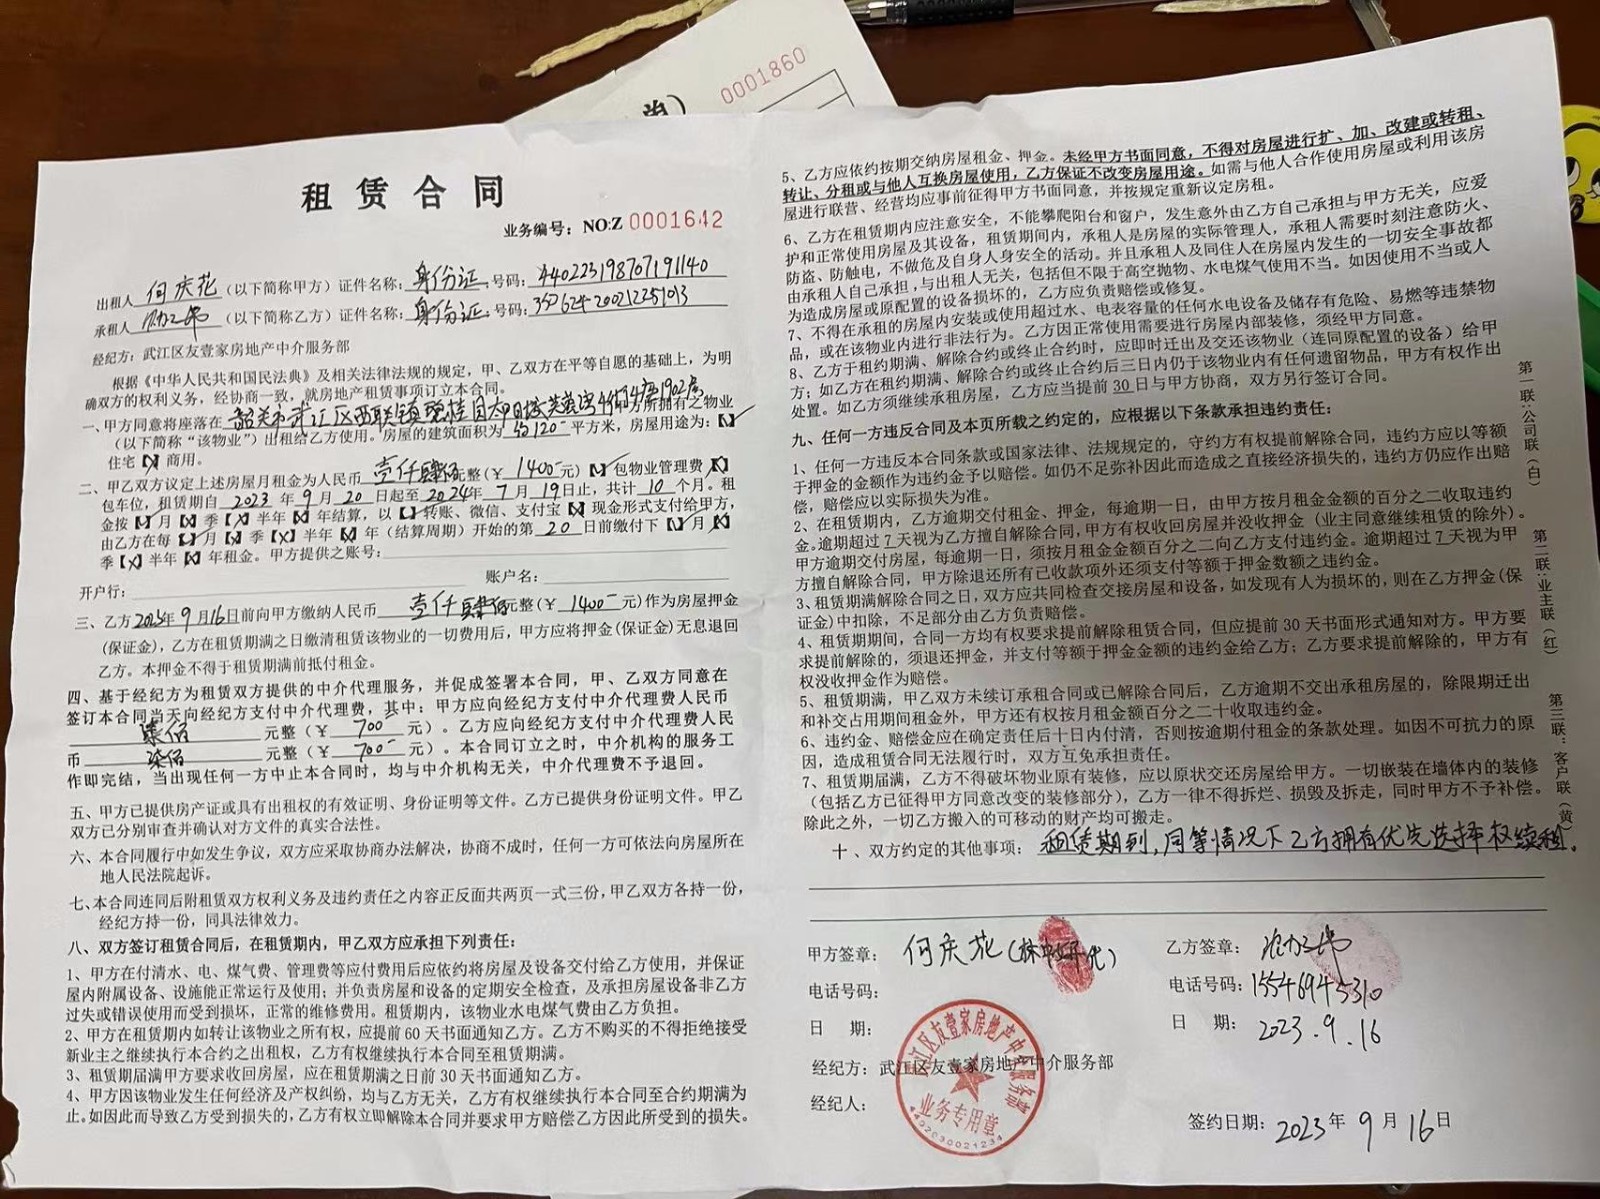 0001860
单)
租 赁 合 同
业务编号：NO:Z 0001642
出租人 何庆花 （以下简称甲方）证件名称：身份证 号码：440223198707191140
承租人 （以下简称乙方）证件名称：身份证 号码：350624200212251013
经纪方：武江区友壹家房地产中介服务部
根据《中华人民共和国民法典》及相关法律法规的规定，甲、乙双方在平等自愿的基础上，为明
确双方的权利义务，经协商一致，就房地产租赁事项订立本合同。
一、甲方同意将座落在 韶关市武江区西联镇碧桂园太阳城芙蓉湾 1902房 方所拥有之物业
（以下简称“该物业”）出租给乙方使用。房屋的建筑面积为 约120 平方米，房屋用途为：【✓】
住宅【×】商用。
二、甲乙双方议定上述房屋月租金为人民币 壹仟肆佰 元整（¥ 1400 元）【✓】包物业管理费【×】
包车位，租赁期自 2023 年 9 月 20 日起至 2024年 7 月 19日止，共计 10 个月。租
金按【✓】月【×】季【×】半年【×】年结算，以【✓】转账、微信、支付宝【×】现金形式支付给甲方，
由乙方在每【✓】月【×】季【×】半年【×】年（结算周期）开始的第 20 日前缴付下【✓】月【×】
季【×】半年【×】年租金。甲方提供之账号：
开户行： 账户名：
三、乙方2023年9月16日前向甲方缴纳人民币 壹仟肆佰元整（¥ 1400 元)作为房屋押金
(保证金)，乙方在租赁期满之日缴清租赁该物业的一切费用后，甲方应将押金(保证金)无息退回
乙方。本押金不得于租赁期满前抵付租金。
四、基于经纪方为租赁双方提供的中介代理服务，并促成签署本合同，甲、乙双方同意在
签订本合同当天向经纪方支付中介代理费，其中：甲方应向经纪方支付中介代理费人民币
柒佰 元整（¥ 700 元）。乙方应向经纪方支付中介代理费人民
币 柒佰 元整（¥ 700 元）。本合同订立之时，中介机构的服务工
作即完结，当出现任何一方中止本合同时，均与中介机构无关，中介代理费不予退回。
五、甲方已提供房产证或具有出租权的有效证明、身份证明等文件。乙方已提供身份证明文件。甲乙
双方已分别审查并确认对方文件的真实合法性。
六、本合同履行中如发生争议，双方应采取协商办法解决，协商不成时，任何一方可依法向房屋所在
地人民法院起诉。
七、本合同连同后附租赁双方权利义务及违约责任之内容正反面共两页一式三份，甲乙双方各持一份，
经纪方持一份，同具法律效力。
八、双方签订租赁合同后，在租赁期内，甲乙双方应承担下列责任：
1、甲方在付清水、电、煤气费、管理费等应付费用后应依约将房屋及设备交付给乙方使用，并保证
屋内附属设备、设施能正常运行及使用；并负责房屋和设备的定期安全检查，及承担房屋设备非乙方
过失或错误使用而受到损坏，正常的维修费用。租赁期内，该物业水电煤气费由乙方负担。
2、甲方在租赁期内如转让该物业之所有权，应提前60天书面通知乙方。乙方不购买的不得拒绝接受
新业主之继续执行本合约之出租权，乙方有权继续执行本合同至租赁期满。
3、租赁期届满甲方要求收回房屋，应在租赁期满之日前30天书面通知乙方。
4、甲方因该物业发生任何经济及产权纠纷，均与乙方无关，乙方有权继续执行本合同至合约期满为
止。如因此而导致乙方受到损失的，乙方有权立即解除本合同并要求甲方赔偿乙方因此所受到的损失。
5、乙方应依约按期交纳房屋租金、押金。未经甲方书面同意，不得对房屋进行扩、加、改建或转租、
转让、分租或与他人互换房屋使用，乙方保证不改变房屋用途。如需与他人合作使用房屋或利用该房
屋进行联营、经营均应事前征得甲方书面同意，并按规定重新议定房租。
6、乙方在租赁期内应注意安全，不能攀爬阳台和窗户，发生意外由乙方自己承担与甲方无关，应爱
护和正常使用房屋及其设备，租赁期间内，承租人是房屋的实际管理人，承租人需要时刻注意防火、
防盗、防触电，不做危及自身人身安全的活动。并且承租人及同住人在房屋内发生的一切安全事故都
由承租人自己承担，与出租人无关，包括但不限于高空抛物、水电煤气使用不当。如因使用不当或人
为造成房屋或原配置的设备损坏的，乙方应负责赔偿或修复。
7、不得在承租的房屋内安装或使用超过水、电表容量的任何水电设备及储存有危险、易燃等违禁物
品，或在该物业内进行非法行为。乙方因正常使用需要进行房屋内部装修，须经甲方同意。
8、乙方于租约期满、解除合约或终止合约时，应即时迁出及交还该物业（连同原配置的设备）给甲
方；如乙方在租约期满、解除合约或终止合约后三日内仍于该物业内有任何遗留物品，甲方有权作出
处置。如乙方须继续承租房屋，乙方应当提前30日与甲方协商，双方另行签订合同。
九、任何一方违反合同及本页所载之约定的，应根据以下条款承担违约责任：
1、任何一方违反本合同条款或国家法律、法规规定的，守约方有权提前解除合同，违约方应以等额
于押金的金额作为违约金予以赔偿。如仍不足弥补因此而造成之直接经济损失的，违约方仍应作出赔
偿，赔偿应以实际损失为准。
2、在租赁期内，乙方逾期交付租金、押金，每逾期一日，由甲方按月租金金额的百分之二收取违约
金。逾期超过7天视为乙方擅自解除合同，甲方有权收回房屋并没收押金（业主同意继续租赁的除外）。
甲方逾期交付房屋，每逾期一日，须按月租金金额百分之二向乙方支付违约金。逾期超过7天视为甲
方擅自解除合同，甲方除退还所有已收款项外还须支付等额于押金数额之违约金。
3、租赁期满解除合同之日，双方应共同检查交接房屋和设备，如发现有人为损坏的，则在乙方押金(保
证金)中扣除，不足部分由乙方负责赔偿。
4、租赁期期间，合同一方均有权要求提前解除租赁合同，但应提前30天书面形式通知对方。甲方要
求提前解除的，须退还押金，并支付等额于押金金额的违约金给乙方；乙方要求提前解除的，甲方有
权没收押金作为赔偿。
5、租赁期满，甲乙双方未续订承租合同或已解除合同后，乙方逾期不交出承租房屋的，除限期迁出
和补交占用期间租金外，甲方还有权按月租金额百分之二十收取违约金。
6、违约金、赔偿金应在确定责任后十日内付清，否则按逾期付租金的条款处理。如因不可抗力的原
因，造成租赁合同无法履行时，双方互免承担责任。
7、租赁期届满，乙方不得破坏物业原有装修，应以原状交还房屋给甲方。一切嵌装在墙体内的装修
（包括乙方已征得甲方同意改变的装修部分），乙方一律不得拆烂、损毁及拆走，同时甲方不予补偿。
除此之外，一切乙方搬入的可移动的财产均可搬走。
十、双方约定的其他事项：租赁期到，同等情况下乙方拥有优先选择权续租。
甲方签章： 何庆花
电话号码：
日 期：
经纪方：武江区友壹家房地产中介服务部
经纪人：
乙方签章：
电话号码：15546945310
日 期：2023.9.16
签约日期：2023年 9 月 16 日
武江区友壹家房地产中介服务部
业务专用章
4402030021234
第一联：公司联（白）
第二联：业主联（红）
第三联：客户联（黄）